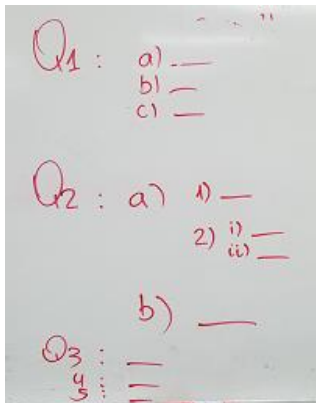 Q1 : a) —
b) —
c) —
Q2 : a) 1) —
2) i) —
ii) —
b) —
Q3 : —
4 : —
5 : —